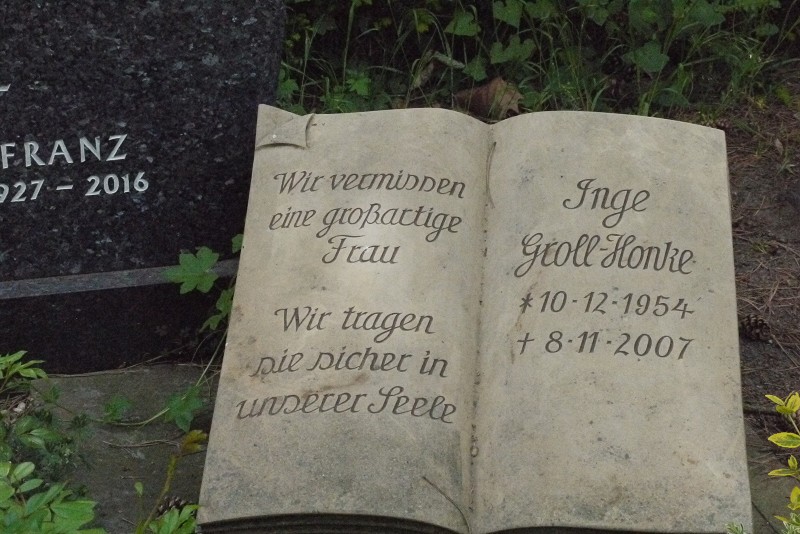 FRANZ
1927 – 2016
Wir vermissen
eine großartige
Frau
Wir tragen
sie sicher in
unserer Seele
Inge
Groll-Honke
* 10·12·1954
† 8·11·2007